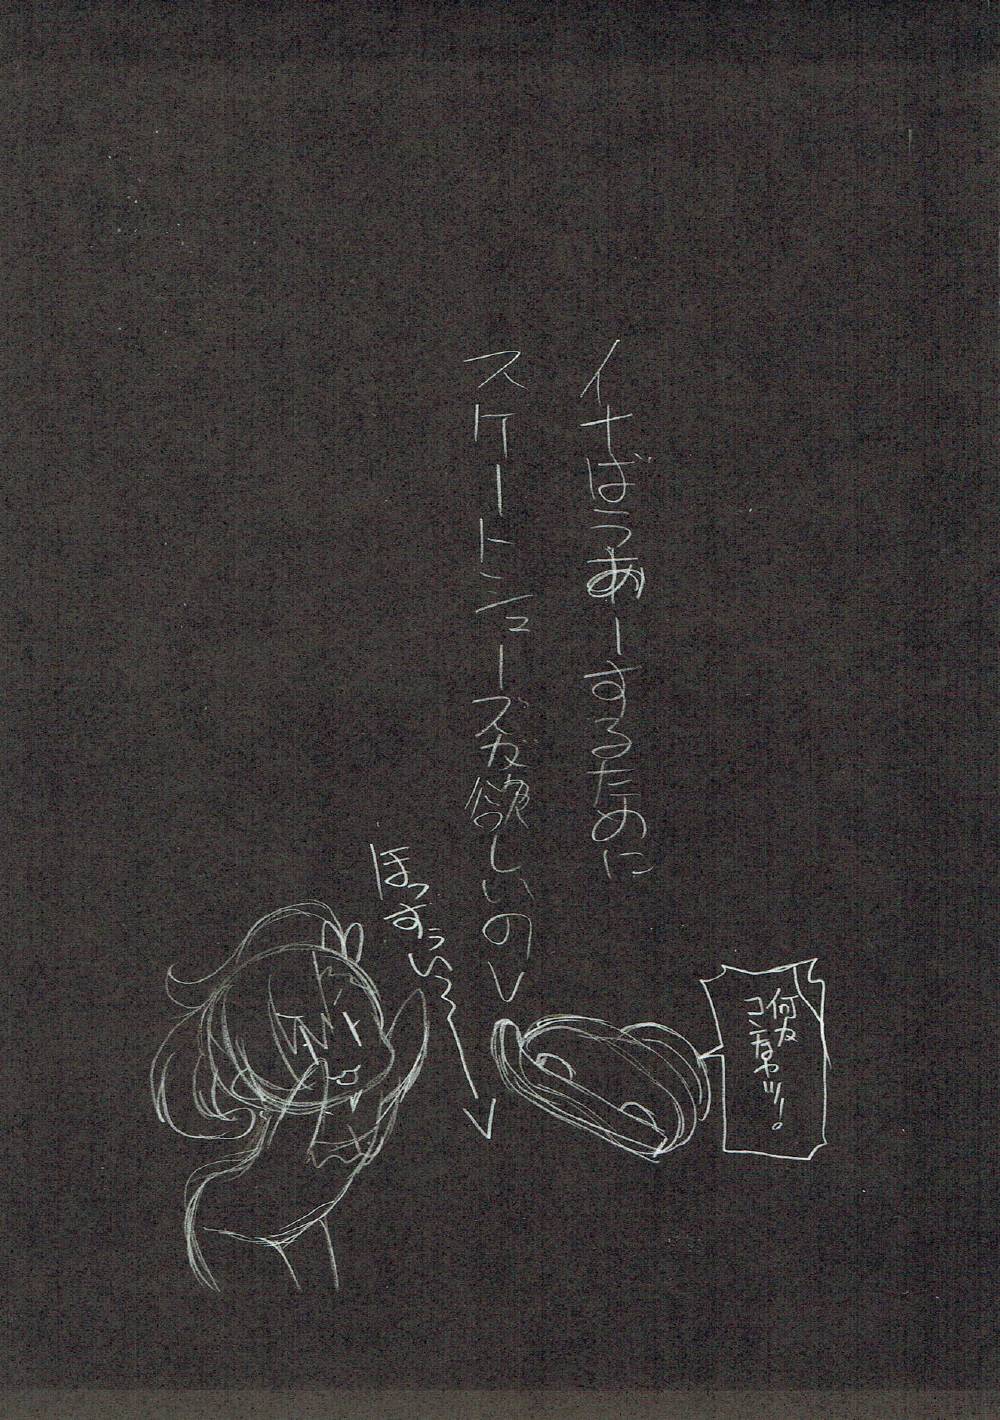 イナばうあーするために
スケートシューズが欲しいの
ほっすぅい〜
何かコンなヤツ!